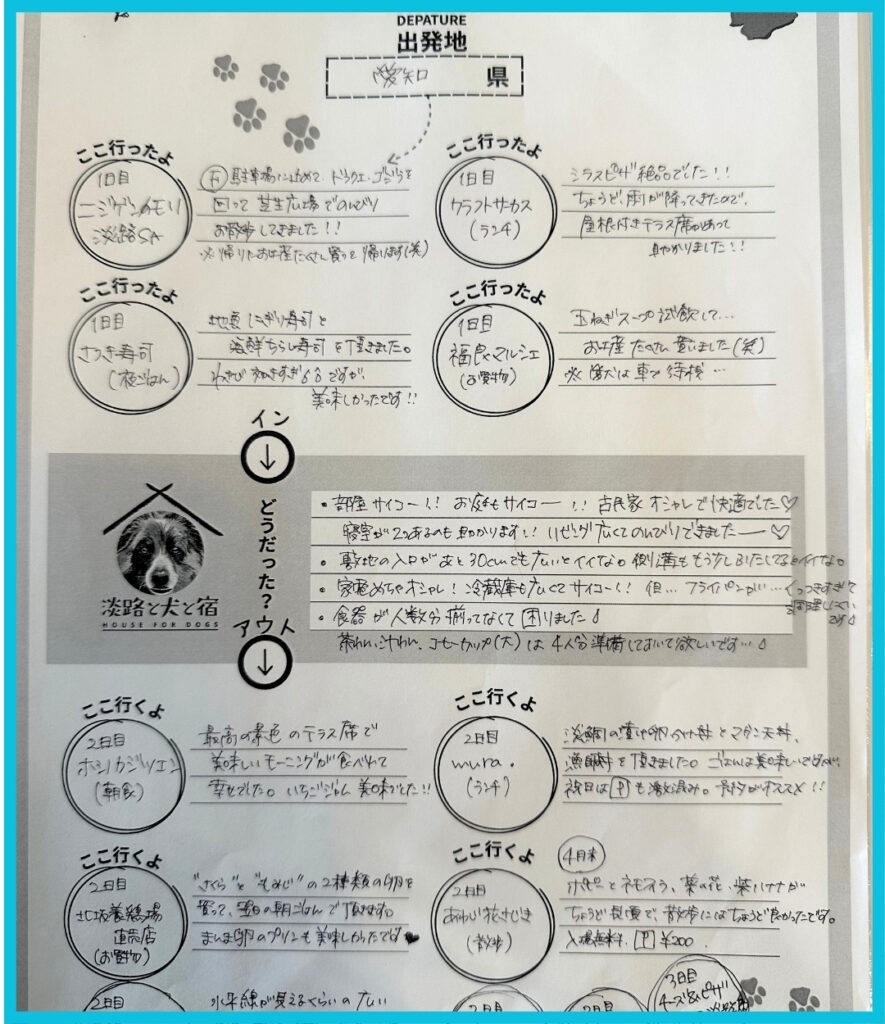 DEPATURE
出発地
愛知 県
ここ行ったよ
1日目
ニジゲンノモリ
淡路SA
Ⓕ駐車場に止めて、ドラクエ、ゴジラを
回って芝生広場でのんびり
お散歩してきました!!
※帰りにお土産たくさん買って帰ります(笑)
ここ行ったよ
1日目
クラフトサーカス
(ランチ)
シラスピザ絶品でした!!
ちょうど雨が降ってきたので、
屋根付きテラス席があって
助かりました!!
ここ行ったよ
1日目
さつき寿司
(夜ごはん)
地魚にぎり寿司と
海鮮ちらし寿司を頂きました。
わさび ですが、
美味しかったです!!
ここ行ったよ
1日目
福良マルシェ
(お買物)
玉ねぎスープ試飲して…
お土産たくさん買いました(笑)
※愛犬は車で待機…
イン
↓
どうだった?
アウト
↓
淡路と犬と宿
HOUSE FOR DOGS
・部屋サイコー!! お庭もサイコー!! 古民家オシャレで快適でした♡
寝室が2つあるのも助かります!! リビング広くてのんびりできましたー♡
・敷地の入口があと30cmでも広いとイイなぁ。側溝ももう少しふたしてるとイイな。
・家電めちゃオシャレ! 冷蔵庫も広くてサイコー!! 但…フライパンが…くっつきすぎて
調理しにくい
です
・食器が人数分揃ってなくて困りました
茶わん、汁わん、コーヒーカップ(大)は4人分準備しておいて欲しいです…
ここ行くよ
2日目
ホシノカジツエン
(朝食)
最高の景色のテラス席で
美味しいモーニングが食べれて
幸せでした。いちごジャム美味でした!!
ここ行くよ
2日目
mura.
(ランチ)
淡鯛の漬け卵かけ丼とマダコ天丼、
漁師丼を頂きました。ごはんは美味しいですが、
祝日は🄿も激混み。予約がオススメ!!
ここ行くよ
2日目
北坂養鶏場
直売店
(お買物)
"さくら"と"もみじ"の2種類の卵を
買って、翌日の朝ごはんで頂きます。
まいま卵のプリンも美味しかったです♥
ここ行くよ
2日目
あわじ花さじき
(散歩)
4月末
ポピーとネモフィラ、菜の花、紫ハナナが
ちょうど見頃で、散歩にはちょうど良かったです。
入場無料、🄿¥200.
2日目
水平線が見えるくらいの広い
2日目
2日目
3日目
チーズ&ピザ